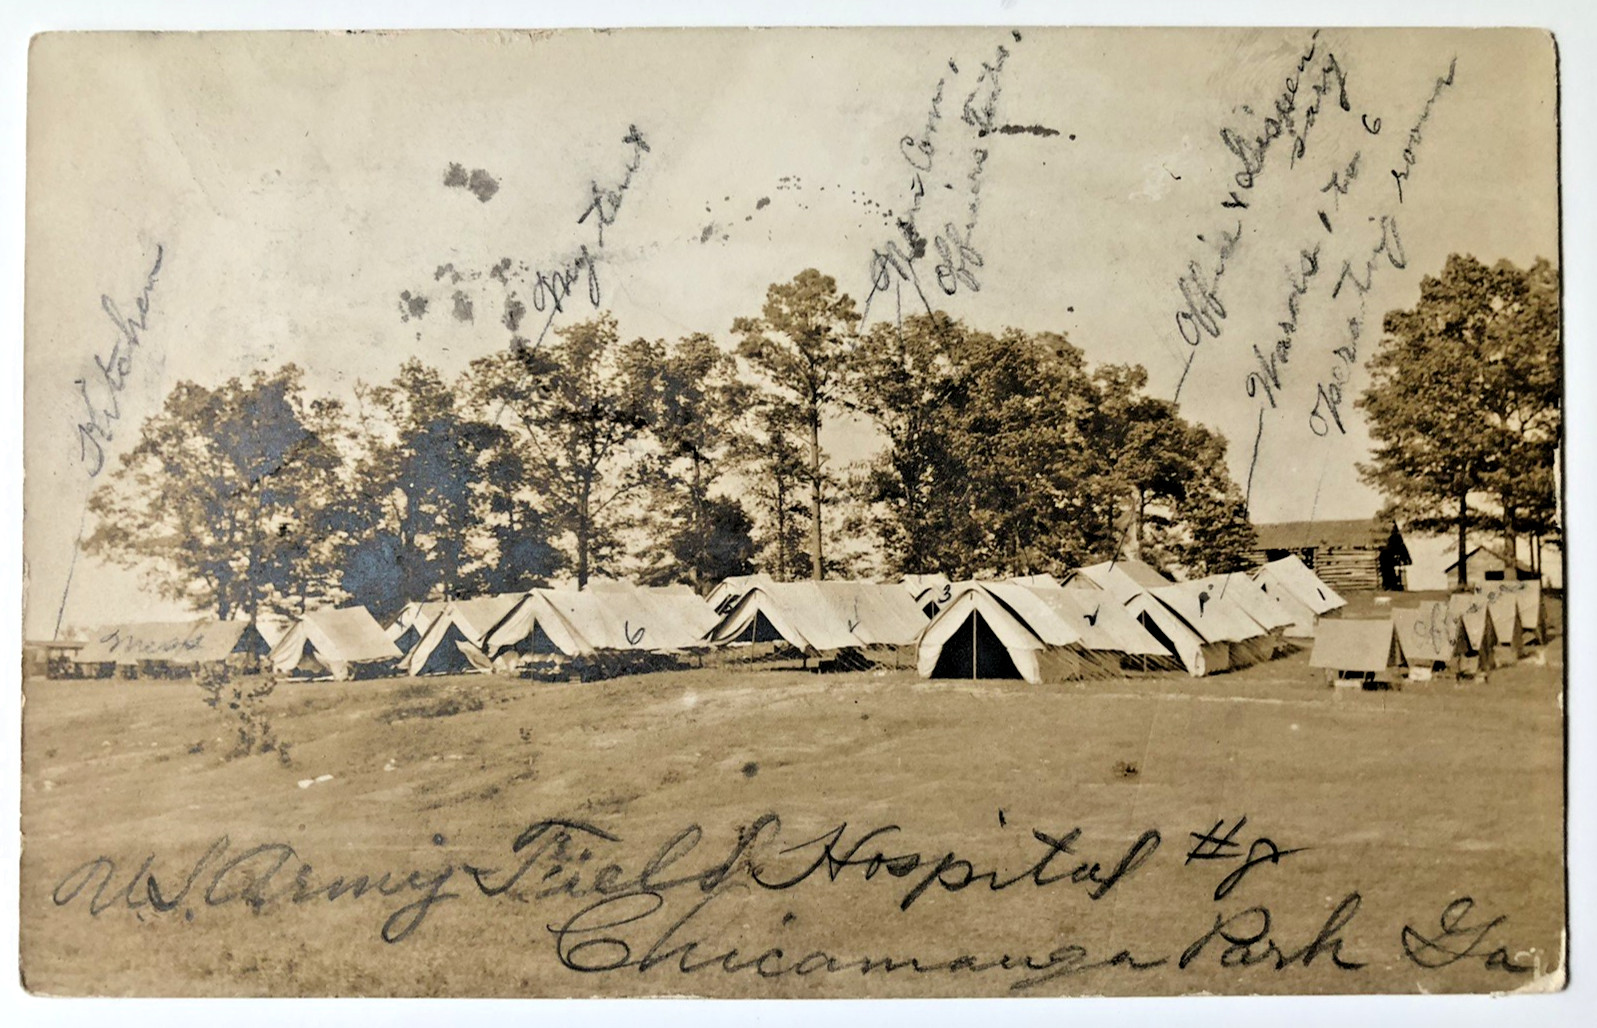 Kitchen
My tent
Non Com.
Officers Tents.
Office & dispen-
sary
Wards 1 to 6
Operating room
Mess
6
3
Officers
U.S. Army Field Hospital #
Chicamauga Park Ga